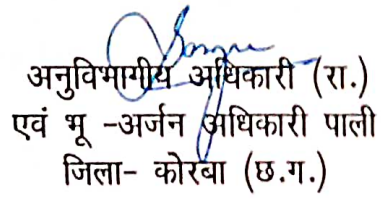 अनुविभागीय अधिकारी (रा.)
एवं भू -अर्जन अधिकारी पाली
जिला- कोरबा (छ.ग.)